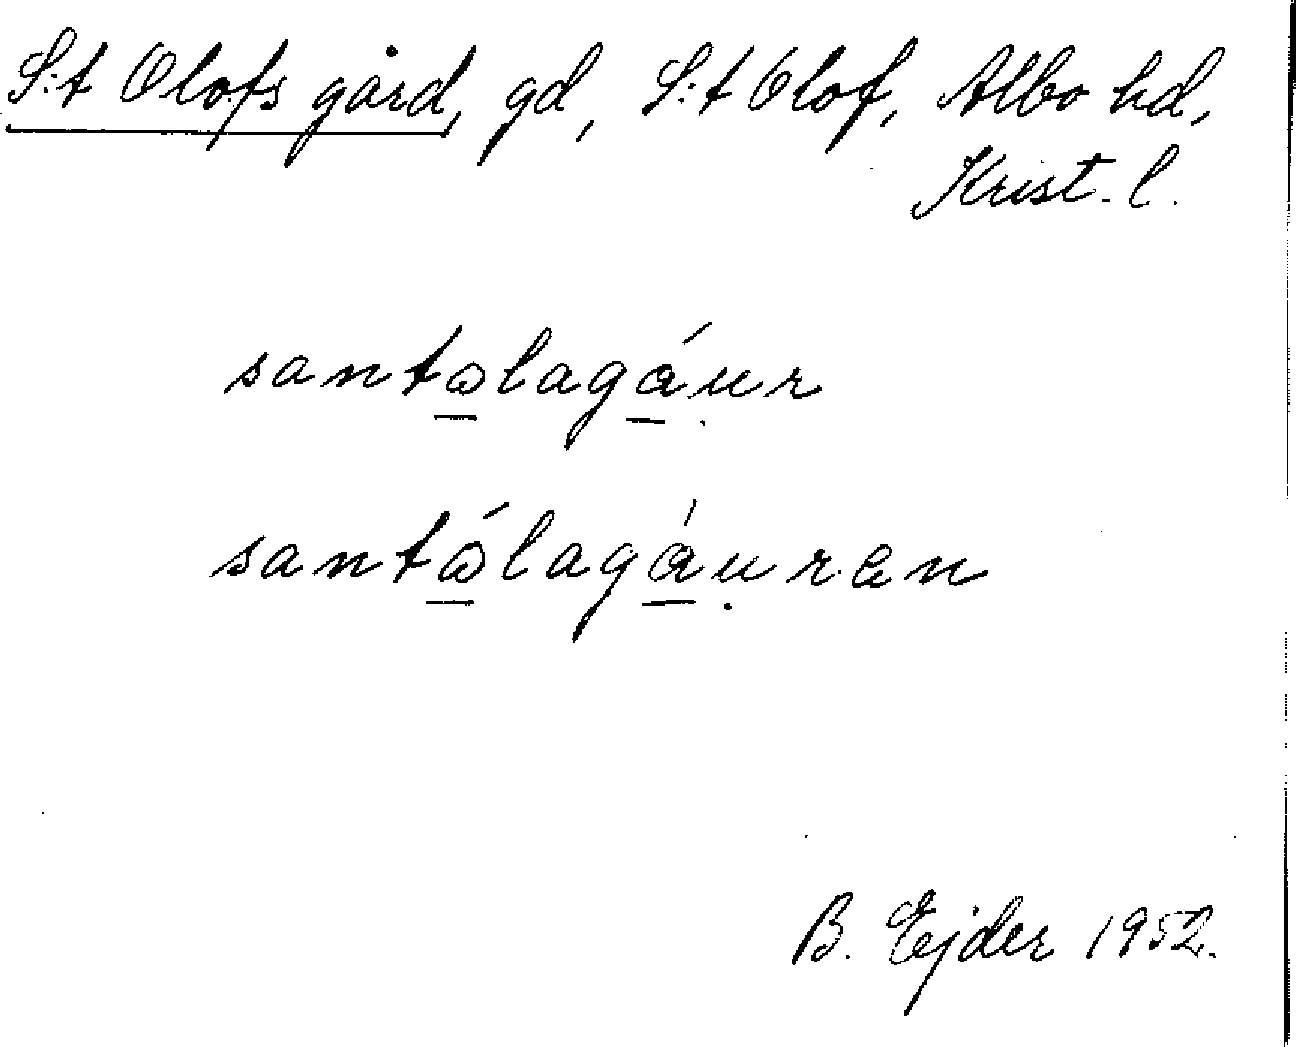 S:t Olofs gård, gd, S:t Olof, Albo hd,
Krist. l.
santω̲lagá̲ụr
santώ̲lagá̲ụren
B. Ejder 1952.